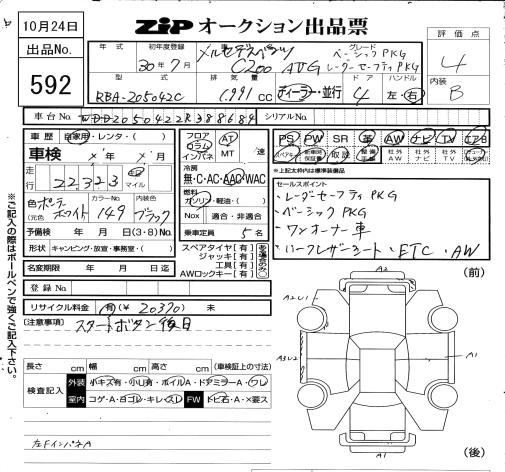 10月24日
ZIP オークション出品票
出品No.
592
年式
初年度登録
30年7月
車名
メルセデスベンツ
C200 AVG
グレード
ベーシックPKG
レーダーセーフティPKG
評価点
4
内装
B
型式
RBA-205042C
排気量
1,991 cc
ディーラー・並行
ドア
4
ハンドル
左・右
車台No.
WDD2050422R388684
シリアルNo.
車歴
自家用・レンタ・( )
車検
年 月 日
走行
22323
km マイル
色
(元色)
ポーラーホワイト
カラーNo.
149
内装色
ブラック
予備検
年 月 日(3・8)No.
形状
キャンピング・放宣・事務室・( )
名変期限
年 月 日迄
登録No.
フロア
コラム
インパネ
AT
MT
速
冷房
無・C・AC・AAC・WAC
燃料
ガソリン・軽油・( )
Nox
適合・非適合
乗車定員
5名
スペアタイヤ[有]
ジャッキ[有]
工具[有]
AWロックキー[有]
PS PW SR 革 AW ナビ TV エアB
スペアキー 新車時保証書 取説 整備手帳 社外AW 社外ナビ 社外TV
※上記太枠内は標準装備品
セールスポイント
・レーダーセーフティPKG
・ベーシックPKG
・ワンオーナー車
・ハーフレザーシート・ETC・AW
リサイクル料金
有(¥ 20370) 未
[注意事項]
スタートボタン後日
長さ cm 幅 cm 高さ cm (車検証上の寸法)
検査記入
外装
小キズ有・小凹有・ホイルA・ドアミラーA・ワレ
室内
コゲ・A・ヨゴレ・キレ・スレ
FW
トビ石・A・×要ス
左FインパネA
※ご記入の際はボールペンで強くご記入下さい。
(前)
A2
A2U1
A3U2
A1
A1
(後)